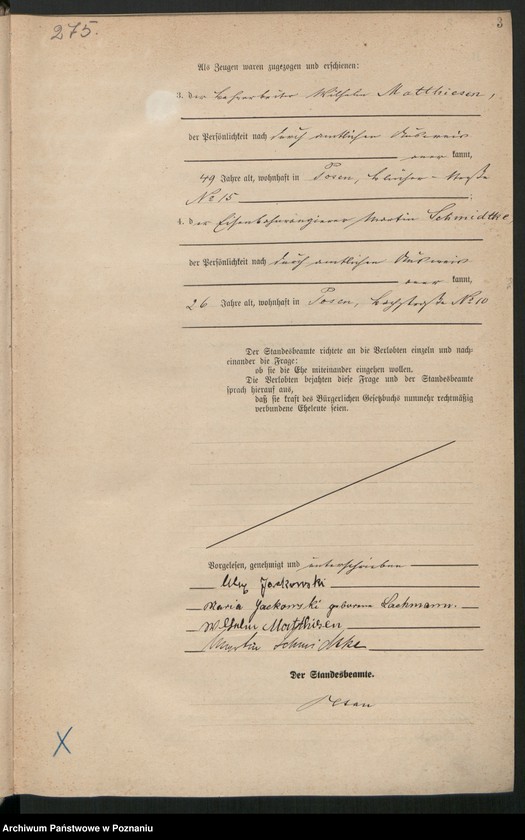 275.
3
Als Zeugen waren zugezogen und erschienen:
3. der Wilhelm Matthiesen,
der Persönlichkeit nach durch amtlichen Ausweis
kannt,
49 Jahre alt, wohnhaft in Posen, Straße
No 15 ;
4. der Eisenbahnrangierer Martin Schmidtke
der Persönlichkeit nach durch amtlichen Ausweis
kannt,
26 Jahre alt, wohnhaft in Posen, No 10
Der Standesbeamte richtete an die Verlobten einzeln und nach-
einander die Frage:
ob sie die Ehe miteinander eingehen wollen.
Die Verlobten bejahten diese Frage und der Standesbeamte
sprach hierauf aus,
daß sie kraft des Bürgerlichen Gesetzbuchs nunmehr rechtmäßig
verbundene Eheleute seien.
Vorgelesen, genehmigt und unterschrieben
Jackowski
Maria Jackowski geborene Lachmann.
Wilhelm Matthiesen
Martin Schmidtke
Der Standesbeamte.
X
Archiwum Państwowe w Poznaniu